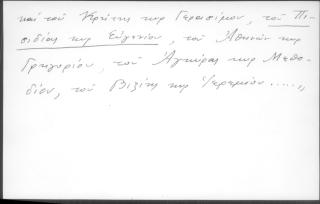 καὶ τοῦ Κρήτης κυρ Γερασίμου, τοῦ Πι-
σιδίας κυρ Εὐγενίου, τοῦ Ἀθηνῶν κυρ
Γρηγορίου, τοῦ Ἀγκύρας κυρ Μεθο-
δίου, τοῦ Βιζύης κυρ Ἱερεμίου.....,,